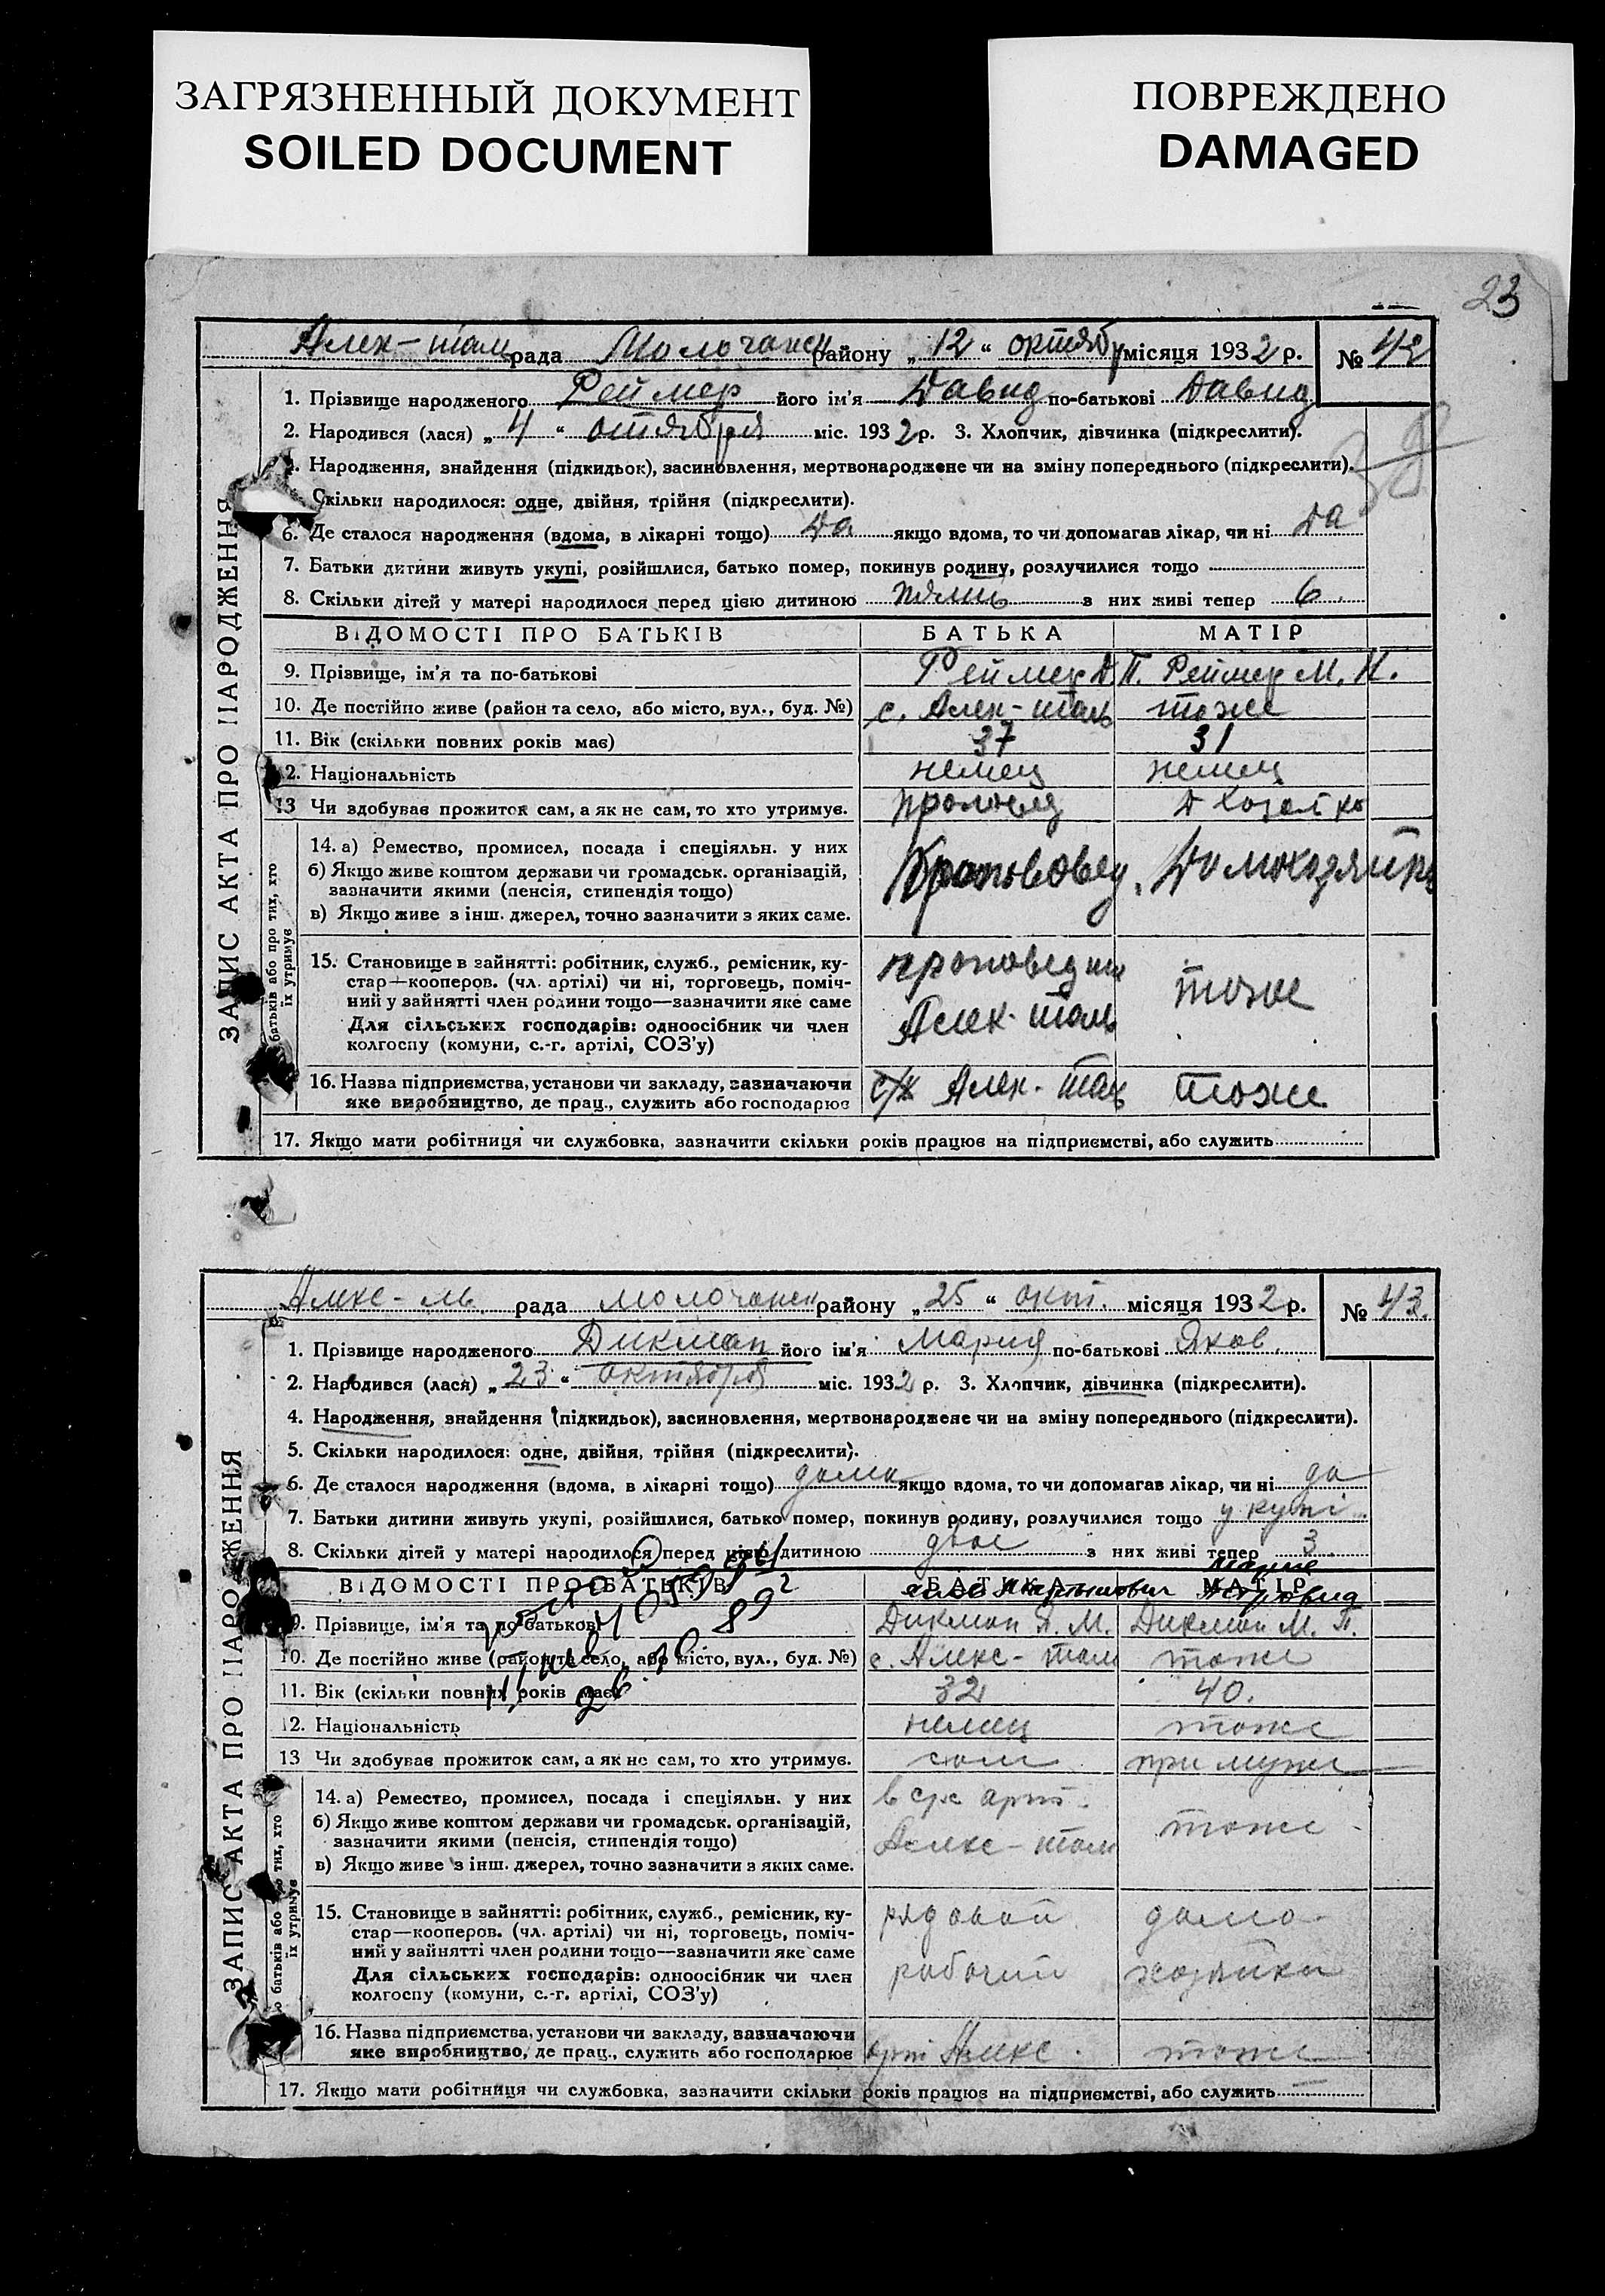 ЗАГРЯЗНЕННЫЙ ДОКУМЕНТ
SOILED DOCUMENT
ПОВРЕЖДЕНО
DAMAGED
23
Алек-таль рада Молочанск району „12“ октябр місяця 1932 р. № 42
1. Прізвище народженого Реймер його ім'я Давид по-батькові Давид
2. Народився (лася) „4“ октября міс. 1932 р. 3. Хлопчик, дівчинка (підкреслити).
Народження, знайдення (підкидьок), засиновлення, мертвонароджене чи на зміну попереднього (підкреслити).
Скільки народилося: одне, двійня, трійня (підкреслити).
6. Де сталося народження (вдома, в лікарні тощо) да якщо вдома, то чи допомагав лікар, чи ні да
7. Батьки дитини живуть укупі, розійшлися, батько помер, покинув родину, розлучилися тощо
8. Скільки дітей у матері народилося перед цією дитиною з них живі тепер 6
ЗАПИС АКТА ПРО НАРОДЖЕННЯ
ВІДОМОСТІ ПРО БАТЬКІВ БАТЬКА МАТІР
9. Прізвище, ім'я та по-батькові Реймер Д. П. Реймер М. К.
10. Де постійно живе (район та село, або місто, вул., буд. №) с. Алек-таль тоже
11. Вік (скільки повних років має) 37 31
12. Національність немец немец
13 Чи здобуває прожиток сам, а як не сам, то хто утримує.
батьків або про тих, хто їх утримує
14. а) Ремество, промисел, посада і спеціяльн. у них
б) Якщо живе коштом держави чи громадськ. організацій,
зазначити якими (пенсія, стипендія тощо)
в) Якщо живе з інш. джерел, точно зазначити з яких саме.
15. Становище в зайнятті: робітник, служб., ремісник, ку-
стар—кооперов. (чл. артілі) чи ні, торговець, поміч-
ний у зайнятті член родини тощо—зазначити яке саме тоже
Для сільських господарів: одноосібник чи член Алек-таль
колгоспу (комуни, с.-г. артілі, СОЗ'у)
16. Назва підприємства, установи чи закладу, зазначаючи
яке виробництво, де прац., служить або господарює Алек-таль тоже
17. Якщо мати робітниця чи службовка, зазначити скільки років працює на підприємстві, або служить
рада Молочанск району „25“ окт. місяця 1932 р. № 43.
1. Прізвище народженого Дикман його ім'я Мария по-батькові Яков.
2. Народився (лася) „23“ октября міс. 1932 р. 3. Хлопчик, дівчинка (підкреслити).
4. Народження, знайдення (підкидьок), засиновлення, мертвонароджене чи на зміну попереднього (підкреслити).
5. Скільки народилося: одне, двійня, трійня (підкреслити).
6. Де сталося народження (вдома, в лікарні тощо) дома якщо вдома, то чи допомагав лікар, чи ні да
7. Батьки дитини живуть укупі, розійшлися, батько помер, покинув родину, розлучилися тощо укупі
8. Скільки дітей у матері народилося перед цією дитиною двое з них живі тепер 3
ЗАПИС АКТА ПРО НАРОДЖЕННЯ
ВІДОМОСТІ ПРО БАТЬКІВ БАТЬКА МАТІР
9. Прізвище, ім'я та по-батькові Дикман Я. М. Дикман М. П.
10. Де постійно живе (район та село, або місто, вул., буд. №) с. Алекс-таль тоже
11. Вік (скільки повних років має) 32 40.
12. Національність немец тоже
13 Чи здобуває прожиток сам, а як не сам, то хто утримує. сам при муже
батьків або про тих, хто їх утримує
14. а) Ремество, промисел, посада і спеціяльн. у них
б) Якщо живе коштом держави чи громадськ. організацій, Алекс-таль тоже
зазначити якими (пенсія, стипендія тощо)
в) Якщо живе з інш. джерел, точно зазначити з яких саме.
15. Становище в зайнятті: робітник, служб., ремісник, ку- рядовой домо-
стар—кооперов. (чл. артілі) чи ні, торговець, поміч-
ний у зайнятті член родини тощо—зазначити яке саме
Для сільських господарів: одноосібник чи член рабочий хозяйка
колгоспу (комуни, с.-г. артілі, СОЗ'у)
16. Назва підприємства, установи чи закладу, зазначаючи
яке виробництво, де прац., служить або господарює арт Алекс. тоже
17. Якщо мати робітниця чи службовка, зазначити скільки років працює на підприємстві, або служить